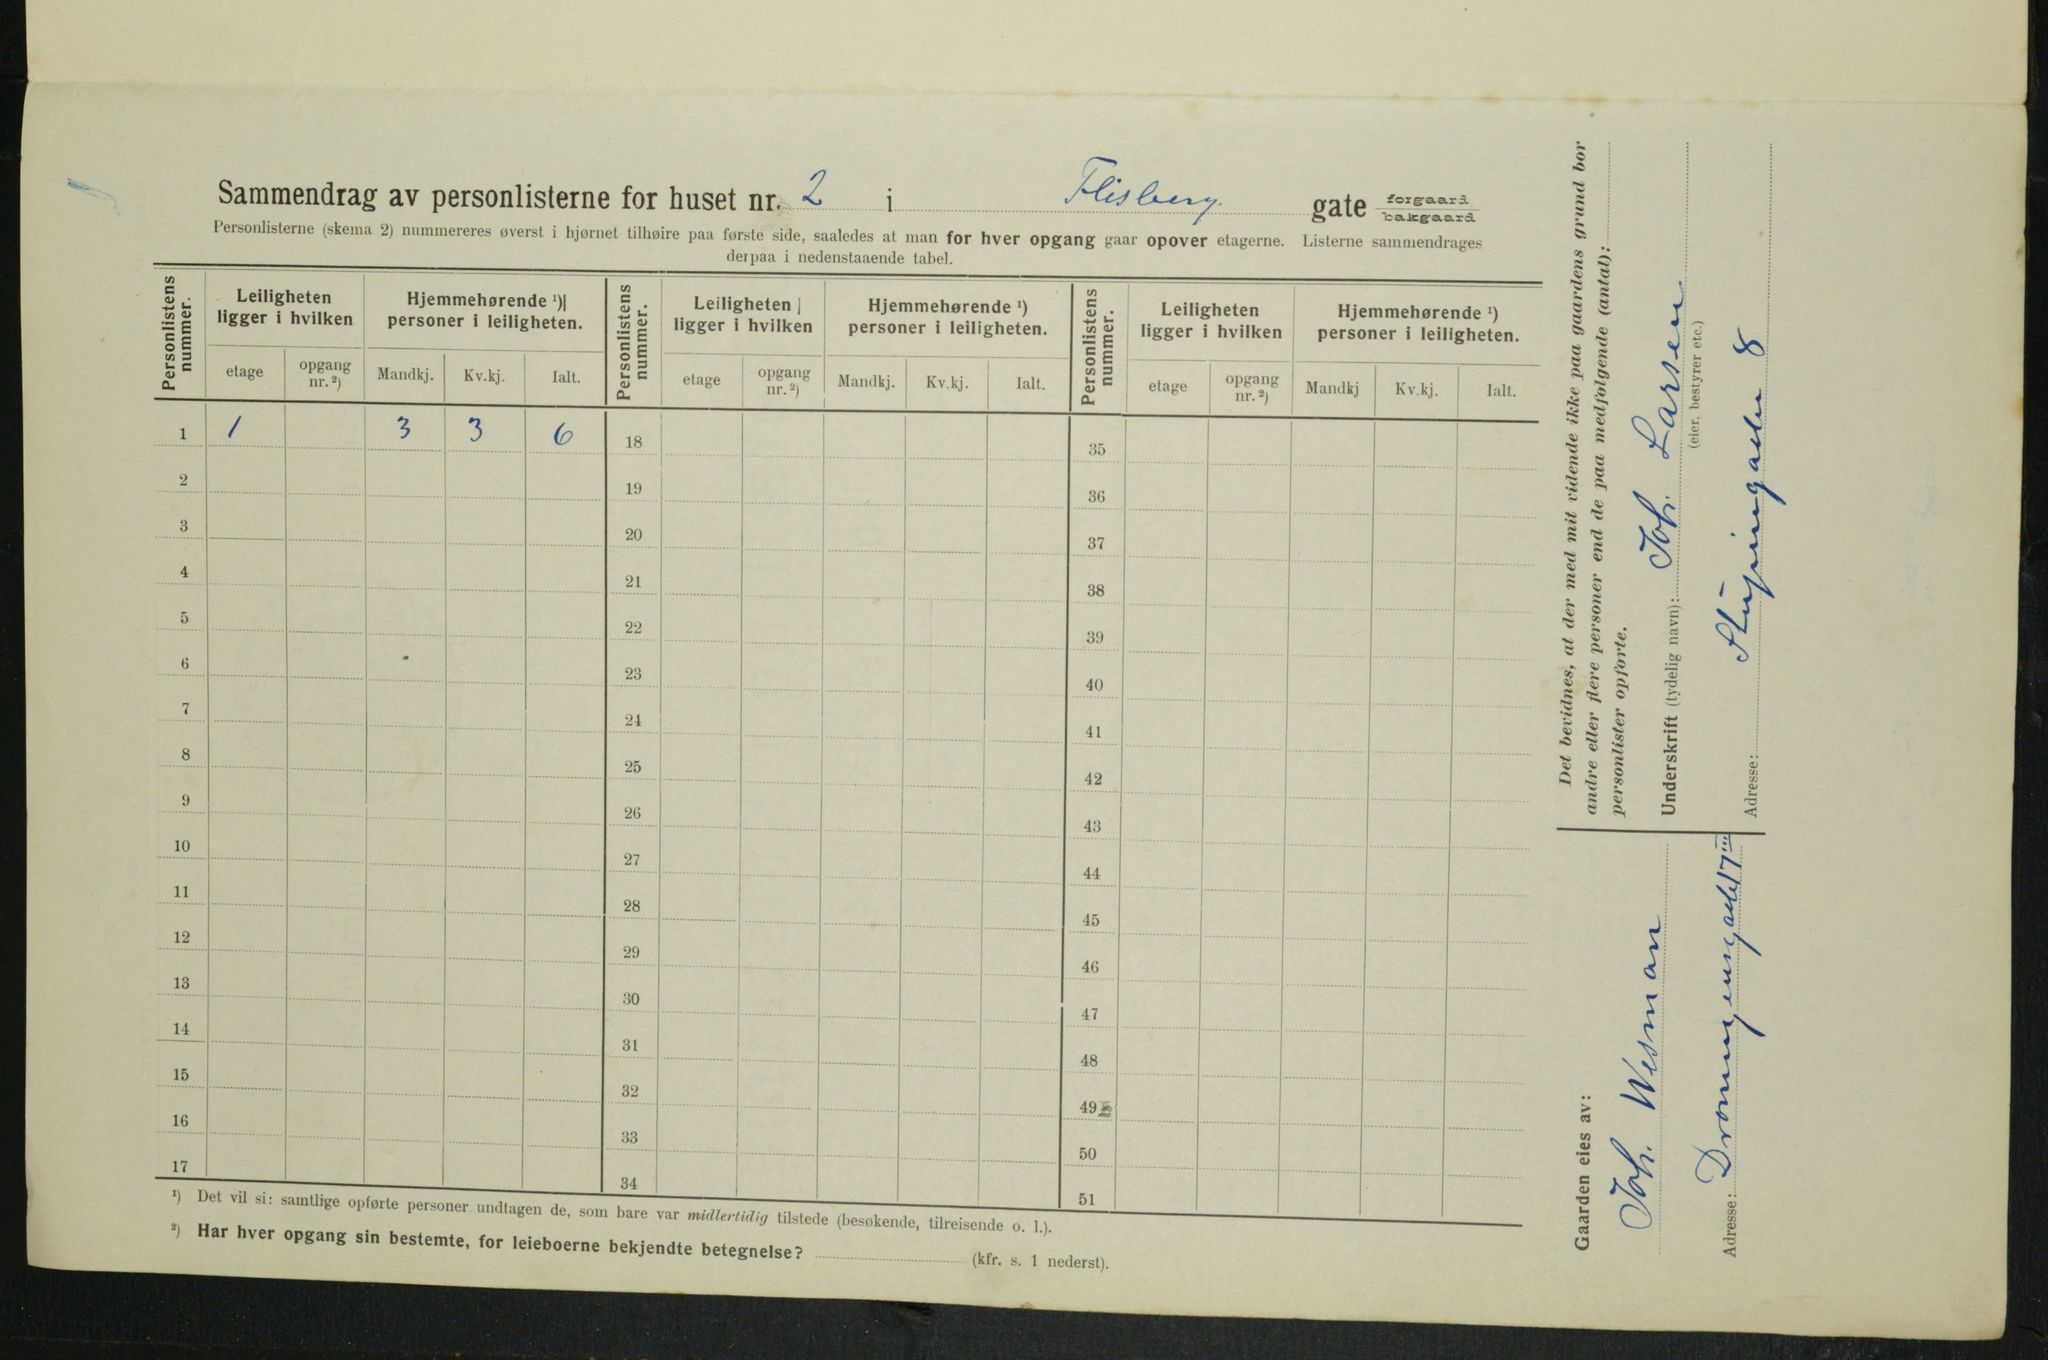 Sammendrag av personlisterne for huset nr. 2 i Flisberg gate forgaard bakgaard
Personlisterne (skema 2) nummereres øverst i hjørnet tilhøire paa første side, saaledes at man for hver opgang gaar opover etagerne. Listerne sammendrages
derpaa i nedenstaaende tabel.
Personlistens nummer. Leiligheten ligger i hvilken Hjemmehørende ¹) personer i leiligheten. Personlistens nummer. Leiligheten ligger i hvilken Hjemmehørende ¹) personer i leiligheten. Personlistens nummer. Leiligheten ligger i hvilken Hjemmehørende ¹) personer i leiligheten.
etage opgang nr. ²) Mandkj. Kv.kj. Ialt. etage opgang nr. ²) Mandkj. Kv.kj. Ialt. etage opgang nr. ²) Mandkj Kv.kj. Ialt.
1 1 3 3 6 18 35
2 19 36
3 20 37
4 21 38
5 22 39
6 23 40
7 24 41
8 25 42
9 26 43
10 27 44
11 28 45
12 29 46
13 30 47
14 31 48
15 32 49
16 33 50
17 34 51
¹) Det vil si: samtlige opførte personer undtagen de, som bare var midlertidig tilstede (besøkende, tilreisende o. l.).
²) Har hver opgang sin bestemte, for leieboerne bekjendte betegnelse? (kfr. s. 1 nederst).
Det bevidnes, at der med mit vidende ikke paa gaardens grund bor
andre eller flere personer end de paa medfølgende (antal):
personlister opførte.
Underskrift (tydelig navn): Joh. Larsen
(eier, bestyrer etc.)
Adresse: 8
Gaarden eies av:
Joh. Wesman
Adresse: